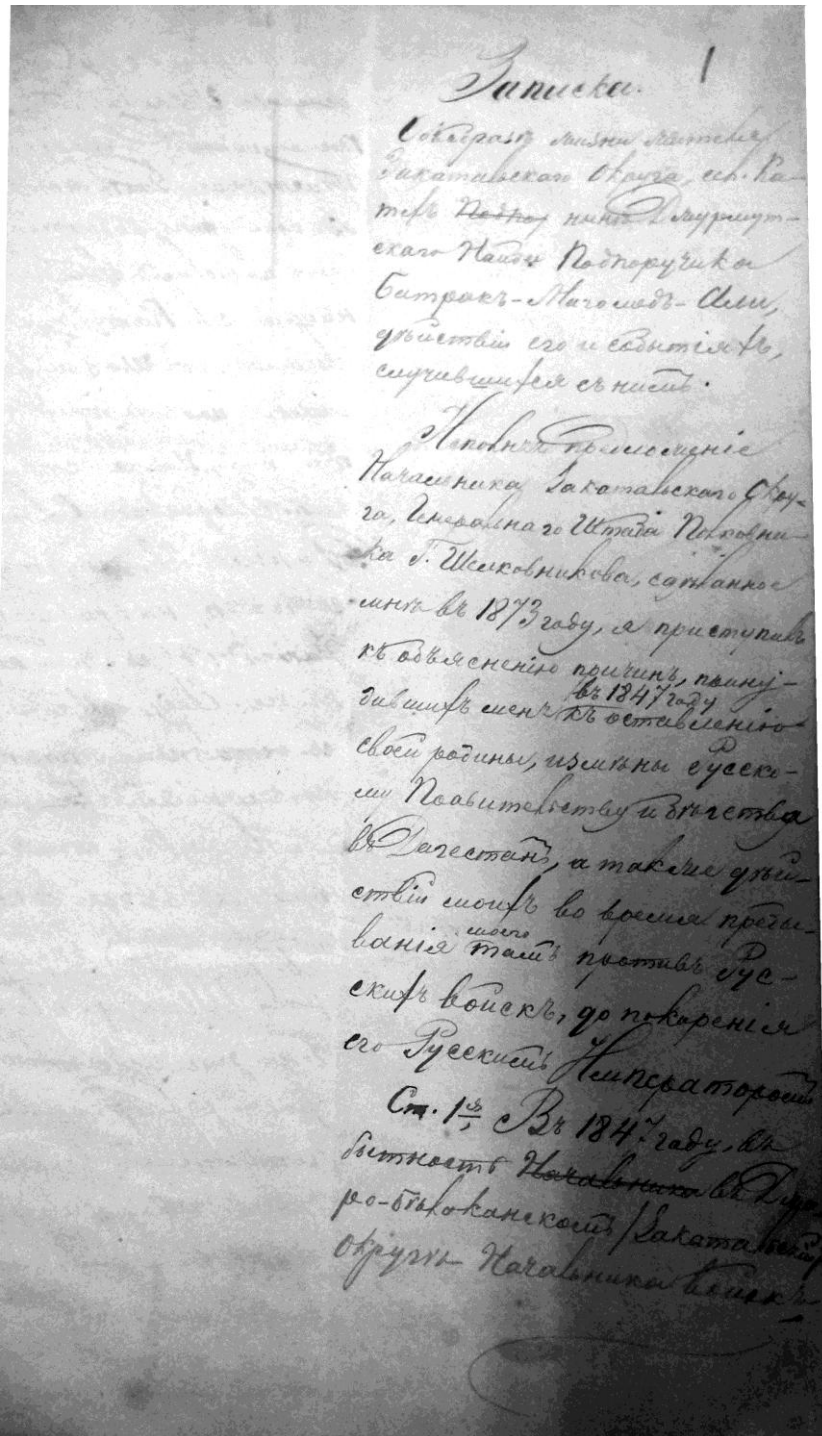 1
Записка.
Объ образѣ жизни жителя
Закатальскаго Округа, сел. Ка-
техъ нынѣ Джурмут-
скаго Наиба Подпоручика
Битракъ-Магомедъ-Али,
дѣйствіи его и событіяхъ,
случившихся съ нимъ.
Исполняя предложеніе
Начальника Закатальскаго Окру-
га, Генеральнаго Штаба Полковни-
ка Г. Шелковникова, сдѣланное
мнѣ въ 1873 году, я приступилъ
къ объясненію причинъ, прину-
въ 1847 году
дившихъ меня къ оставленію
своей родины, измѣны Русско-
му Правительству и бѣгства
въ Дагестанъ, а также дѣй-
ствій моихъ во время пребы-
моего
ванія тамъ противъ Рус-
скихъ войскъ, до покоренія
его Русскимъ Императоромъ
Ст. 1я Въ 1847 году, въ
бытность Начальника въ Джа-
ро-Бѣлоканскомъ /Закатальскомъ/
округѣ Начальника войскъ